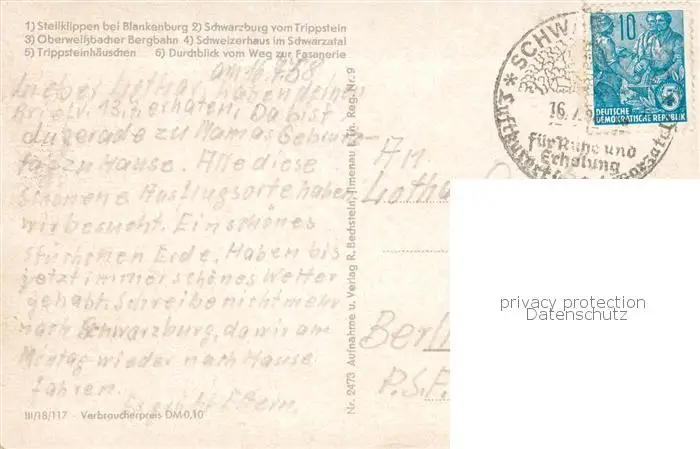 1) Steilklippen bei Blankenburg 2) Schwarzburg vom Trippstein
3) Oberweißbacher Bergbahn 4) Schweizerhaus im Schwarzatal
5) Trippsteinhäuschen 6) Durchblick vom Weg zur Fasanerie
am 16.7.58
Lieber Lothar, haben deinen
Brief v. 13. erhalten. Da bist
du gerade zu Mamas Geburts-
tag zu Hause. Alle diese
schönen Ausflugsorte haben
wir besucht. Ein schönes
Stückchen Erde. Haben bis
jetzt immer schönes Wetter
gehabt. Schreibe nicht mehr
nach Schwarzburg, da wir am
Montag wieder nach Hause
fahren.
Es grüßt Eltern.
III/18/117 - Verbraucherpreis DM 0,10
Nr. 2473 Aufnahme u. Verlag R. Bechstein, Ilmenau i. Th. Reg. Nr. 9
An
Lotha
Berli
P.S.F.
SCHW
16.7.
für Ruhe und
Erholung
Luftkurort
10
5
DEUTSCHE
DEMOKRATISCHE REPUBLIK
privacy protection
Datenschutz